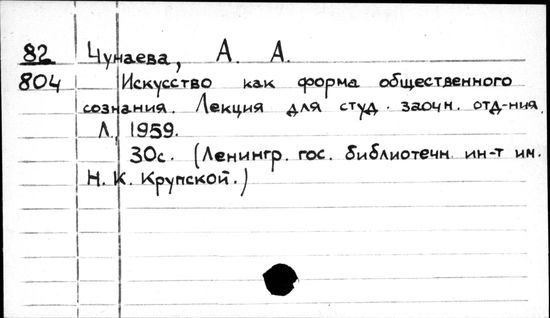 82 Чунаева, А. А.
804 Искусство как форма общественного
сознания. Лекция для студ. заочн. отд-ния.
Л., 1959.
30с. (Ленингр. гос. библиотечн. ин-т им.
Н. К. Крупской.)